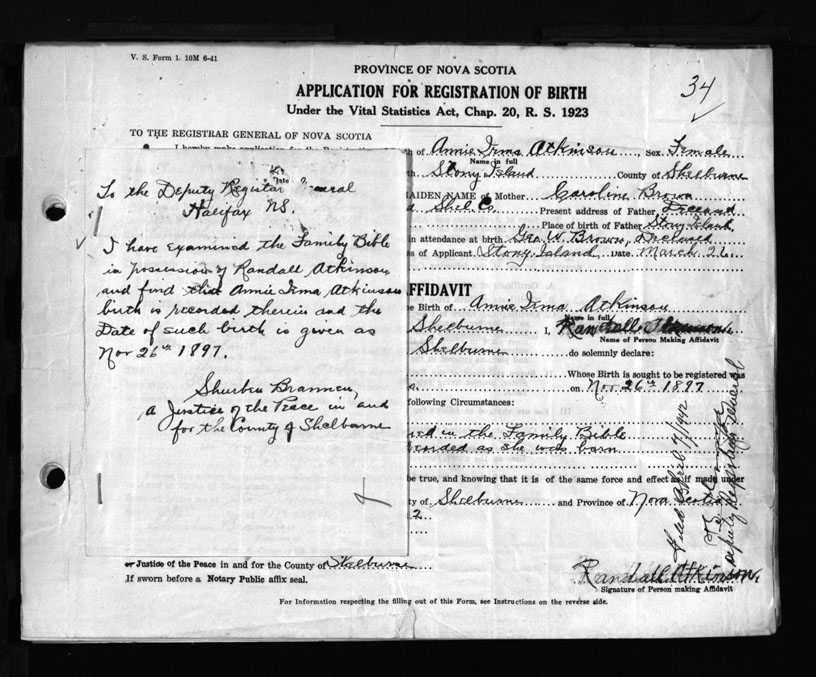 V. S. Form 1. 10M 6-41
PROVINCE OF NOVA SCOTIA
APPLICATION FOR REGISTRATION OF BIRTH
Under the Vital Statistics Act, Chap. 20, R. S. 1923
34
TO THE REGISTRAR GENERAL OF NOVA SCOTIA
of Annie Irma Atkinson, Sex Female
Name in full
Stony Island County of Shelburne
MAIDEN NAME of Mother Caroline Brown
Shel Co. Present address of Father
Place of birth of Father Stony Island
in attendance at birth Geo. W. Brown,
of Applicant Stony Island DATE March 26
To the Deputy
Halifax NS.
I have examined the Family Bible
in possession of Randall Atkinson
and find that Annie Irma Atkinson
birth is recorded therein and the
Date of such birth is given as
Nov 26th 1897.
a Justice of the Peace in and
for the County of Shelburne
AFFIDAVIT
Birth of Annie Irma Atkinson
Name in full
Shelburne I, Randall
Name of Person Making Affidavit
Shelburne do solemnly declare:
Whose Birth is sought to be registered was
on Nov. 26th 1897
following Circumstances:
in the Family Bible
as she was born
be true, and knowing that it is of the same force and effect as if made under
of Shelburne and Province of Nova Scotia
2
or Justice of the Peace in and for the County of Shelburne
If sworn before a Notary Public affix seal.
Randall Atkinson.
Signature of Person making Affidavit
For Information respecting the filling out of this Form, see Instructions on the reverse side.
Filed April 7/1942
Deputy Registrar General